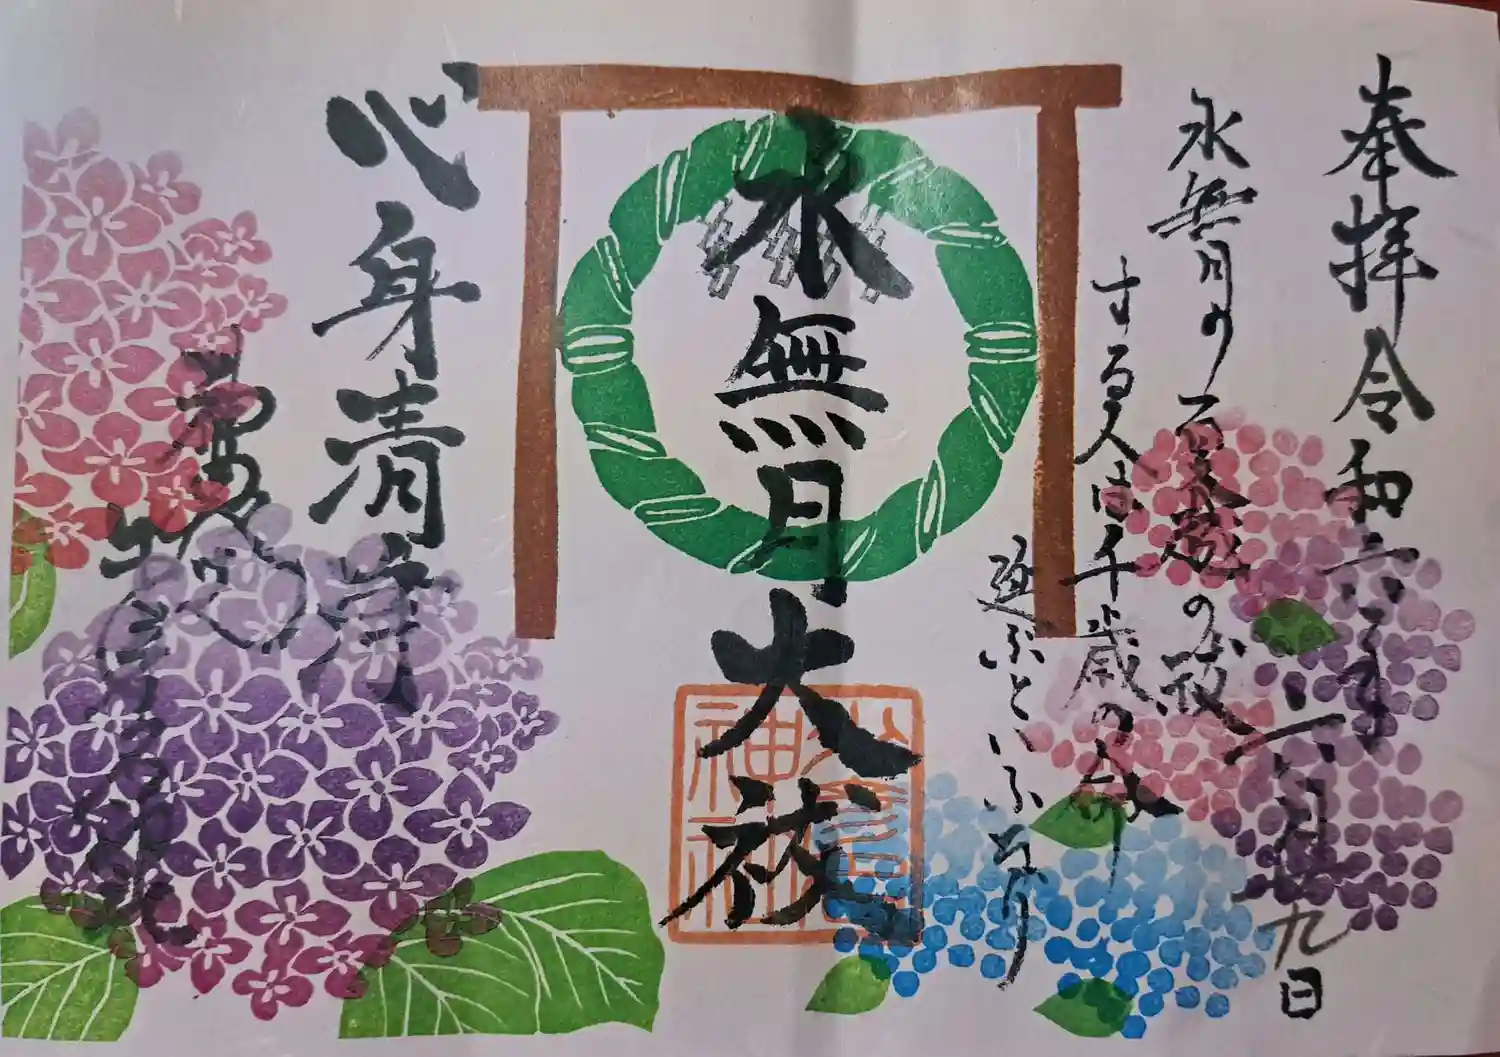 奉拝 令和六年 六月 九日
水無月の
夏越の祓
する人は千歳の命
延ぶといふなり
水無月大祓
心身清浄
神社